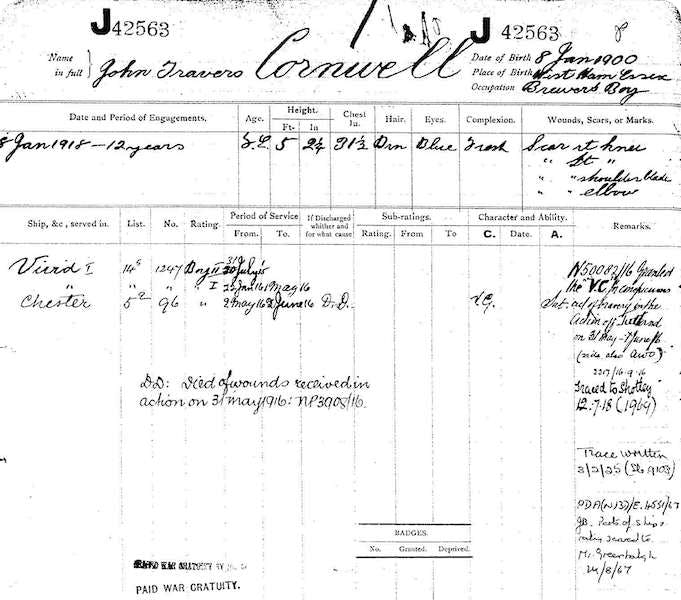 J 42563
J 42563
Name in full
John Travers Cornwell
Date of Birth 8 Jan 1900
Place of Birth West Ham Essex
Occupation Brewers Boy
Date and Period of Engagements.
Age.
Height.
Ft. In
Chest In.
Hair.
Eyes.
Complexion.
Wounds, Scars, or Marks.
8 Jan 1918 – 12 years
5 2¼ 31½ Brn Blue Fresh
Scar rt knee
" " shoulder blade
" " elbow
Ship, &c., served in.
List.
No.
Rating.
Period of Service
From. To.
If Discharged whether and for what cause
Sub-ratings.
Rating. From To
Character and Ability.
C. Date. A.
Remarks.
Vivid I 1247 Boy II July 15
" " " I May 16
Chester 96 " 2 May 16 2 June 16 D.D.
V.G.
Sat.
N50082/16 Granted
the V.C.
act of bravery in the
action off Jutland
on 31 May - 1 June /16
(vide also AWO)
2217/16-9-16
Traced to Shotley
12.7.18 (1969)
D.D: Died of wounds received in
action on 31 May 1916: NP3908/16.
Trace written
3/2/25
Parts of ship's
to
Mr Greenhalgh
/8/67
BADGES.
No. Granted. Deprived.
PAID WAR GRATUITY.